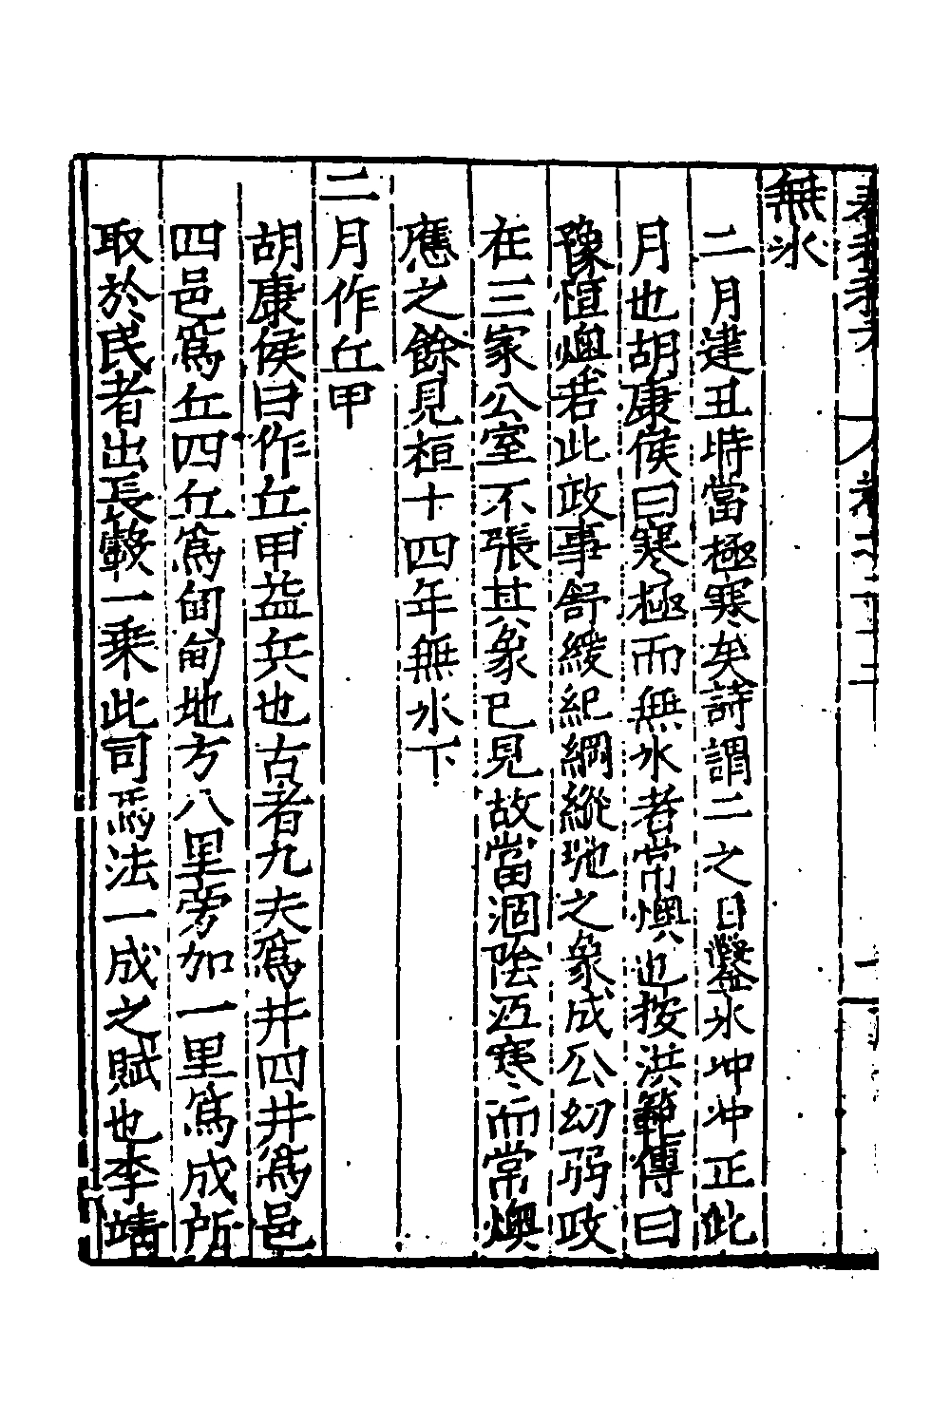 無氷
二月建丑時當極寒矣詩謂二之日鑿氷冲冲正此
月也胡康侯曰寒極而無氷者常燠也按洪範傳曰
豫恒燠若此政事舒緩紀綱縱弛之象成公幼弱政
在三家公室不張其象已見故當涸陰沍寒而常燠
應之餘見桓十四年無氷下
二月作丘甲
胡康侯曰作丘甲益兵也古者九夫爲井四井爲邑
四邑爲丘四丘爲甸甸地方八里旁加一里爲成所
取於民者出長轂一乘此司馬法一成之賦也李靖